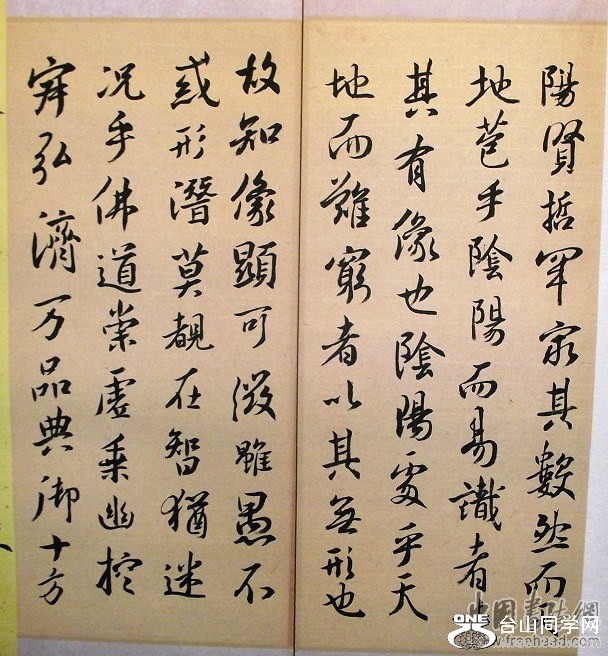 陽賢哲罕窮其數然而
地苞乎陰陽而易識者
其有像也陰陽處乎天
地而難窮者以其無形也
故知像顯可徵雖愚不
惑形潛莫覩在智猶迷
況乎佛道崇虛乘幽控
寂弘濟万品典御十方
ONE 台山同学网